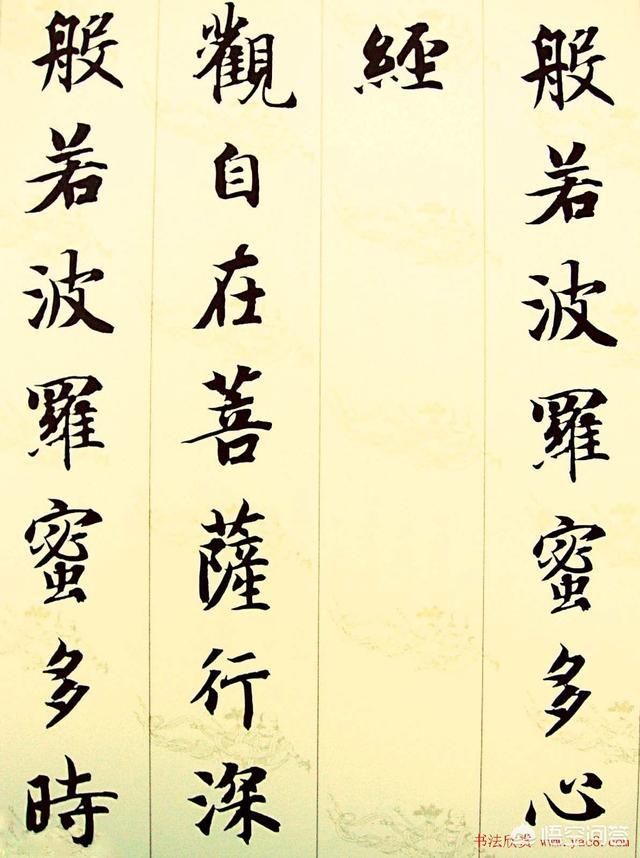 般若波羅蜜多心
經
觀自在菩薩行深
般若波羅蜜多時
书法欣赏 www.yac8.com
悟空问答